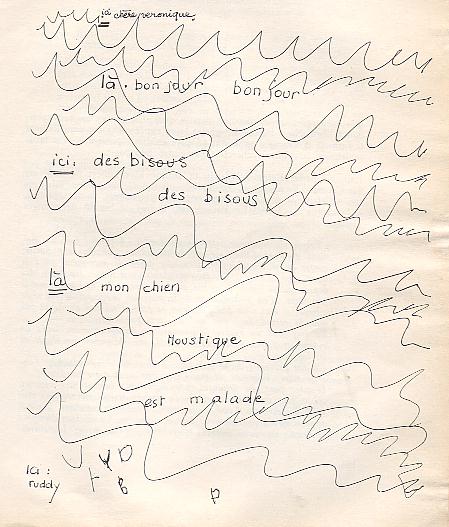 ici chère peronique.
là. bonjour bonjour
ici. des bisous
des bisous
là mon chien
Moustique
est malade
Ici :
ruddy